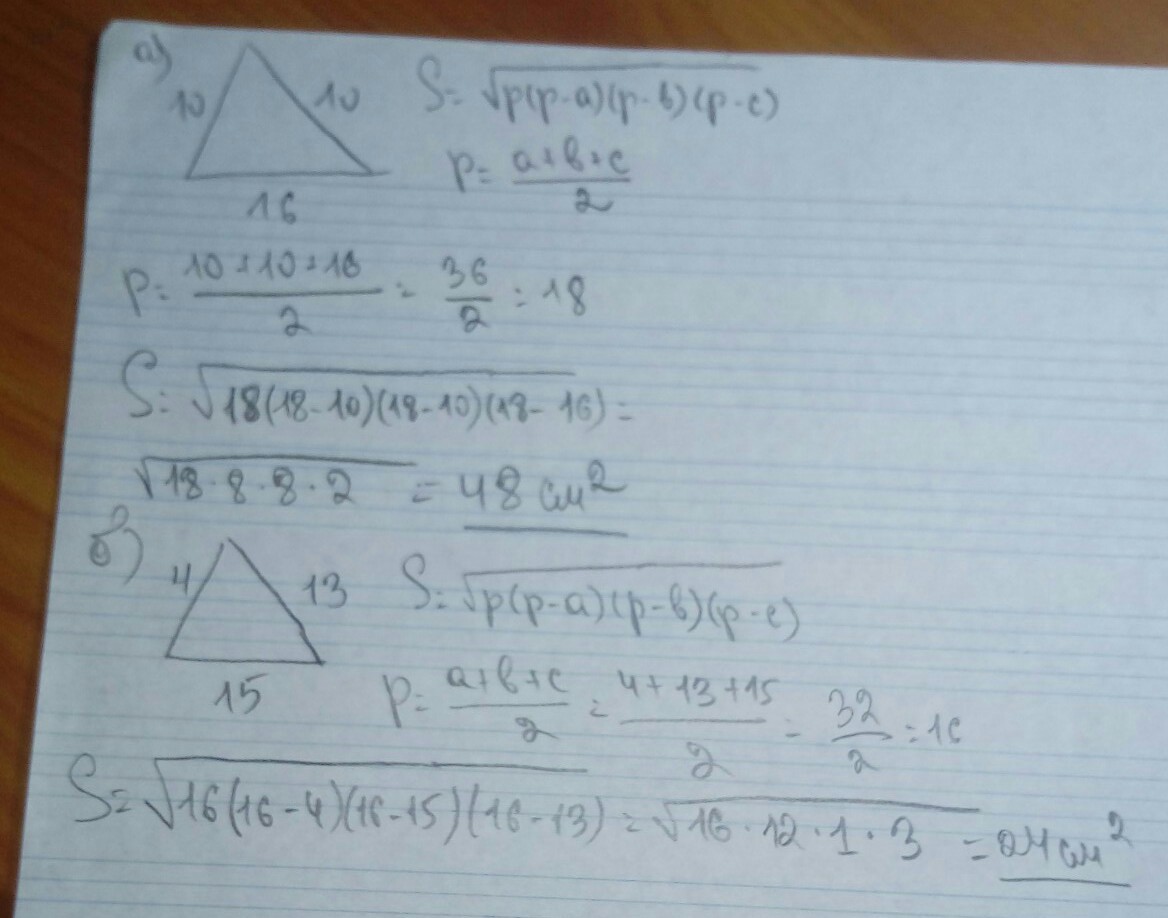 а)
10 10 S = √p(p-a)(p-b)(p-c)
16 p = (a+b+c)/2
p = (10+10+16)/2 = 36/2 = 18
S = √18(18-10)(18-10)(18-16) =
√18·8·8·2 = 48 см²
б)
4 13 S = √p(p-a)(p-b)(p-c)
15 p = (a+b+c)/2 = (4+13+15)/2 = 32/2 = 16
S = √16(16-4)(16-15)(16-13) = √16·12·1·3 = 24 см²